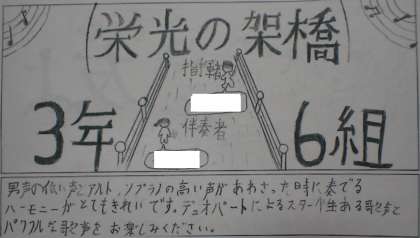 栄光の架橋
指揮者
3年 6組
伴奏者
男声の低い声とアルト、ソプラノの高い声があわさった時に奏でる
ハーモニーがとてもきれいです。デュオパートによるスター性ある歌声と
パワフルな歌声をお楽しみください。